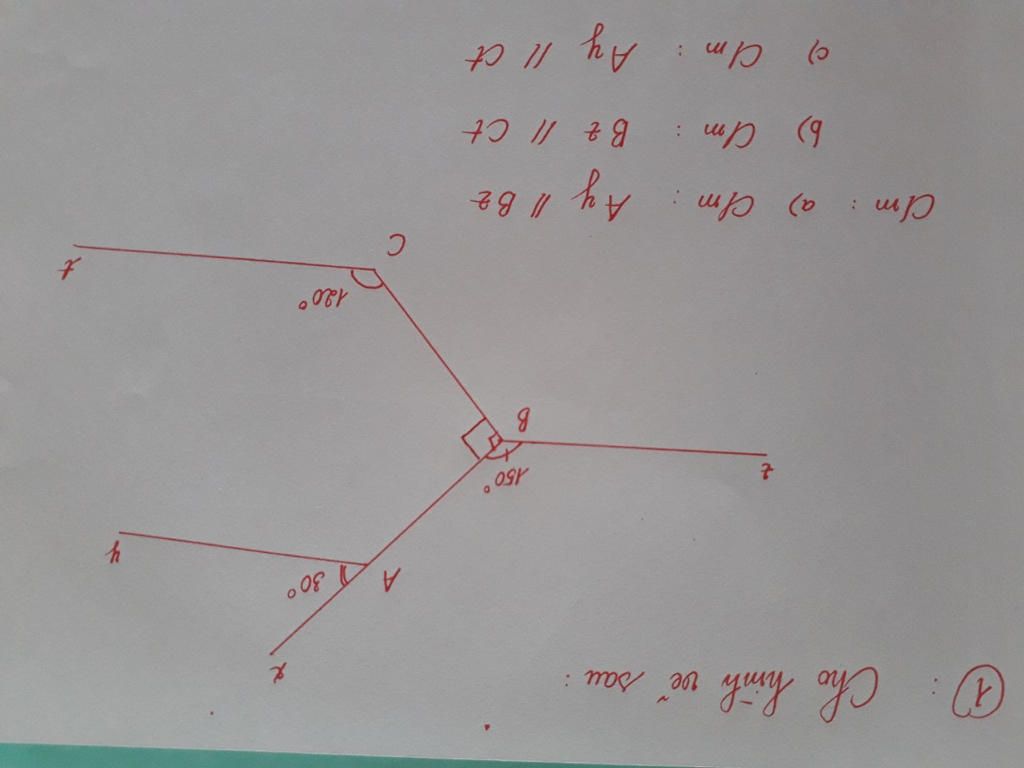 ① : Cho hình vẽ sau :
x
30°
A
y
150°
z
B
120°
t
C
Cm : a) Cm : Ay // Bz
b) Cm : Bz // Ct
c) Cm : Ay // Ct